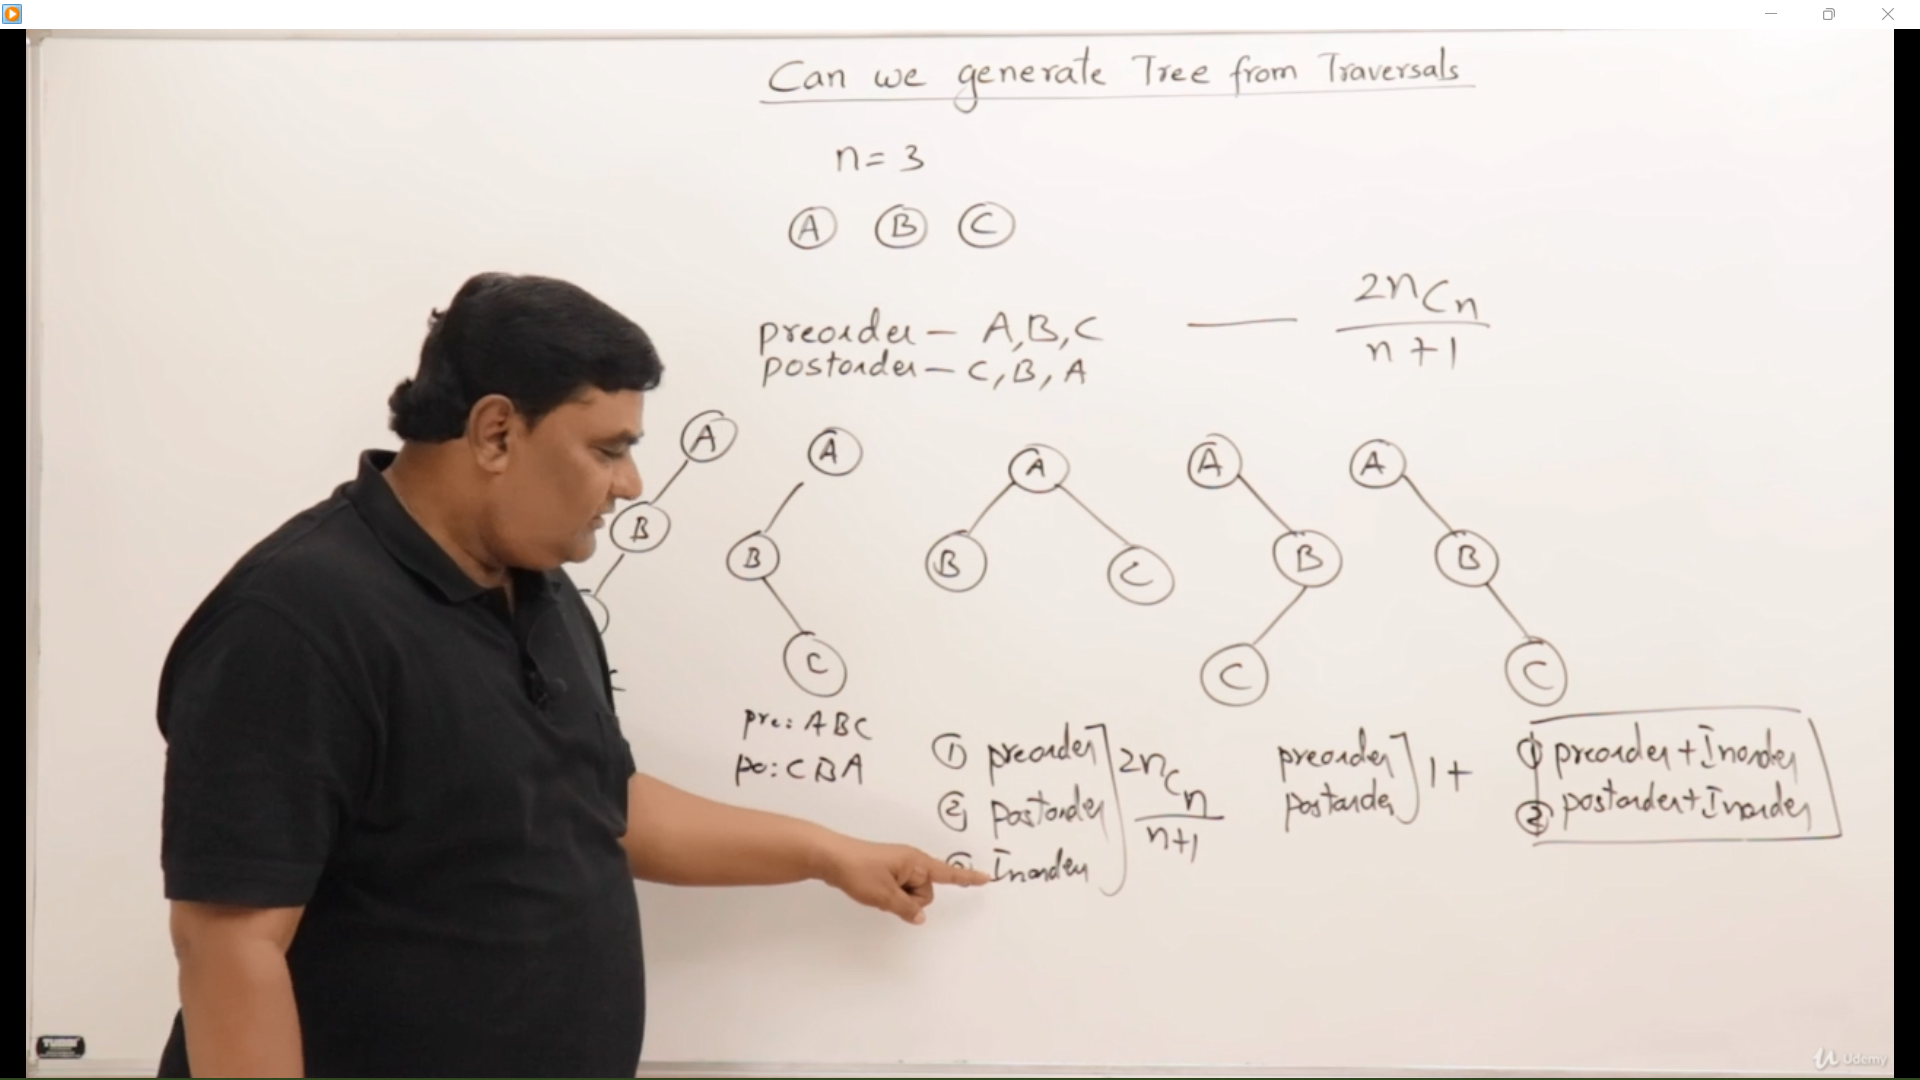 Can we generate Tree from Traversals
n = 3
A B C
preorder – A, B, C — 2nCn
n+1
postorder – C, B, A
A A A A A
B B B C B B
C C C
pre: ABC
po: CBA
① preorder
② postorder
Inorder
2nCn
n+1
preorder
postorder
1+
① preorder + Inorder
② postorder + Inorder
Udemy